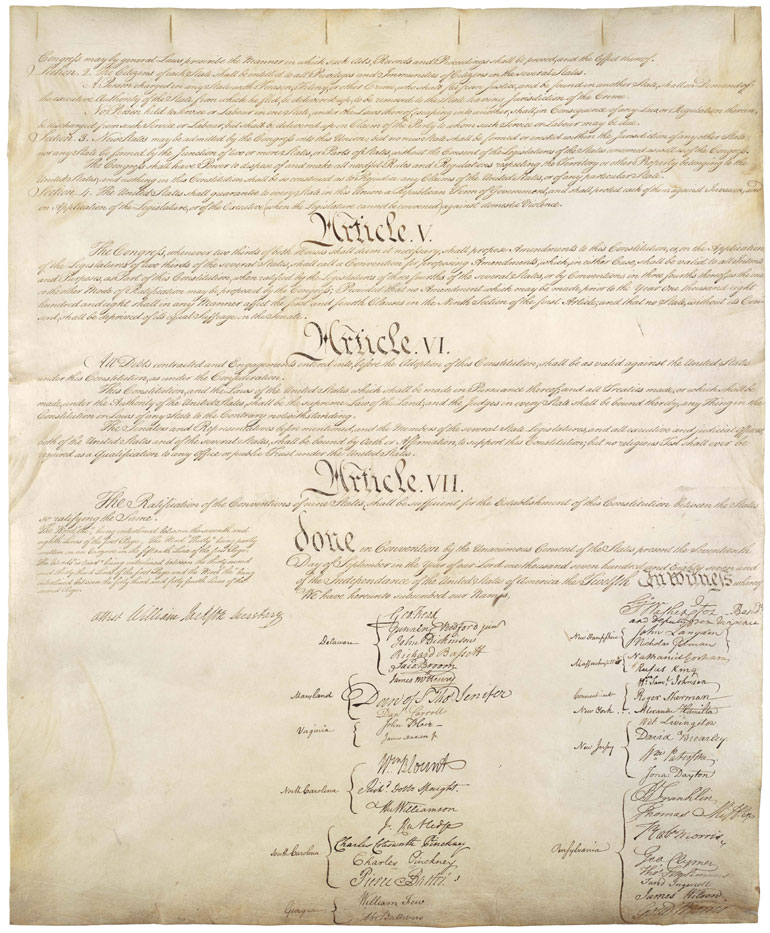 Congress may by general Laws prescribe the Manner in which such Acts, Records and Proceedings shall be proved, and the Effect thereof.
Section. 2. The Citizens of each State shall be entitled to all Privileges and Immunities of Citizens in the several States.
A Person charged in any State with Treason, Felony, or other Crime, who shall flee from Justice, and be found in another State, shall on Demand of
the executive Authority of the State from which he fled, be delivered up, to be removed to the State having Jurisdiction of the Crime.
No Person held to Service or Labour in one State, under the Laws thereof, escaping into another, shall, in Consequence of any Law or Regulation therein,
be discharged from such Service or Labour, but shall be delivered up on Claim of the Party to whom such Service or Labour may be due.
Section. 3. New States may be admitted by the Congress into this Union; but no new State shall be formed or erected within the Jurisdiction of any other State;
nor any State be formed by the Junction of two or more States, or Parts of States, without the Consent of the Legislatures of the States concerned as well as of the Congress.
The Congress shall have Power to dispose of and make all needful Rules and Regulations respecting the Territory or other Property belonging to the
United States; and nothing in this Constitution shall be so construed as to Prejudice any Claims of the United States, or of any particular State.
Section. 4. The United States shall guarantee to every State in this Union a Republican Form of Government, and shall protect each of them against Invasion; and
on Application of the Legislature, or of the Executive (when the Legislature cannot be convened) against domestic Violence.
Article. V.
The Congress, whenever two thirds of both Houses shall deem it necessary, shall propose Amendments to this Constitution, or, on the Application
of the Legislatures of two thirds of the several States, shall call a Convention for proposing Amendments, which, in either Case, shall be valid to all Intents
and Purposes, as Part of this Constitution, when ratified by the Legislatures of three fourths of the several States, or by Conventions in three fourths thereof, as the one
or the other Mode of Ratification may be proposed by the Congress; Provided that no Amendment which may be made prior to the Year One thousand eight
hundred and eight shall in any Manner affect the first and fourth Clauses in the Ninth Section of the first Article; and that no State, without its Con-
sent, shall be deprived of its equal Suffrage in the Senate.
Article. VI.
All Debts contracted and Engagements entered into, before the Adoption of this Constitution, shall be as valid against the United States
under this Constitution, as under the Confederation.
This Constitution, and the Laws of the United States which shall be made in Pursuance thereof; and all Treaties made, or which shall be
made, under the Authority of the United States, shall be the supreme Law of the Land; and the Judges in every State shall be bound thereby, any Thing in the
Constitution or Laws of any State to the Contrary notwithstanding.
The Senators and Representatives before mentioned, and the Members of the several State Legislatures, and all executive and judicial Officers,
both of the United States and of the several States, shall be bound by Oath or Affirmation, to support this Constitution; but no religious Test shall ever be
required as a Qualification to any Office or public Trust under the United States.
Article. VII.
The Ratification of the Conventions of nine States, shall be sufficient for the Establishment of this Constitution between the States
so ratifying the Same.
The Word, "the," being interlined between the seventh and
eighth Lines of the first Page, The Word "Thirty" being partly
written on an Erazure in the fifteenth Line of the first Page,
The Words "is tried" being interlined between the thirty second
and thirty third Lines of the first Page and the Word "the" being
interlined between the forty third and forty fourth Lines of the
second Page.
Attest William Jackson Secretary
done in Convention by the Unanimous Consent of the States present the Seventeenth
Day of September in the Year of our Lord one thousand seven hundred and Eighty seven and
of the Independance of the United States of America the Twelfth In witness whereof
We have hereunto subscribed our Names,
Delaware
Geo: Read
Gunning Bedford jun
John Dickinson
Richard Bassett
Jaco: Broom
Maryland
James McHenry
Dan of St Thos. Jenifer
Danl Carroll
Virginia
John Blair–
James Madison Jr.
North Carolina
Wm Blount
Richd. Dobbs Spaight.
Hu Williamson
South Carolina
J. Rutledge
Charles Cotesworth Pinckney
Charles Pinckney
Pierce Butler.
Georgia
William Few
Abr Baldwin
Go. Washington–Presidt.
and deputy from Virginia
New Hampshire
John Langdon
Nicholas Gilman
Massachusetts
Nathaniel Gorham
Rufus King
Connecticut
Wm. Saml. Johnson
Roger Sherman
New York . . .
Alexander Hamilton
New Jersey
Wil: Livingston
David Brearley
Wm. Paterson.
Jona: Dayton
Pensylvania
B Franklin
Thomas Mifflin
Robt Morris
Geo. Clymer
Thos. FitzSimons
Jared Ingersoll
James Wilson
Gouv Morris